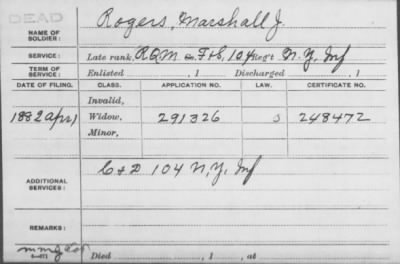 DEAD
NAME OF SOLDIER: Rogers, Marshall J.
SERVICE: Late rank, R.Q.M. Co. F+S, 104 Reg't N.Y. Inf
TERM OF SERVICE: Enlisted , 1 Discharged , 1
DATE OF FILING. CLASS. APPLICATION NO. LAW. CERTIFICATE NO.
Invalid,
1882 Apr 1 Widow, 291326 248472
Minor,
ADDITIONAL SERVICES: C + D 104 N.Y. Inf
REMARKS:
Died , 1 , at